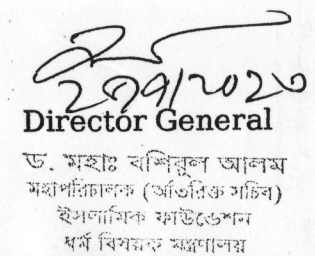 Director General
ড. মহাঃ বশিরুল আলম
মহাপরিচালক (অতিরিক্ত সচিব)
ইসলামিক ফাউন্ডেশন
ধর্ম বিষয়ক মন্ত্রণালয়